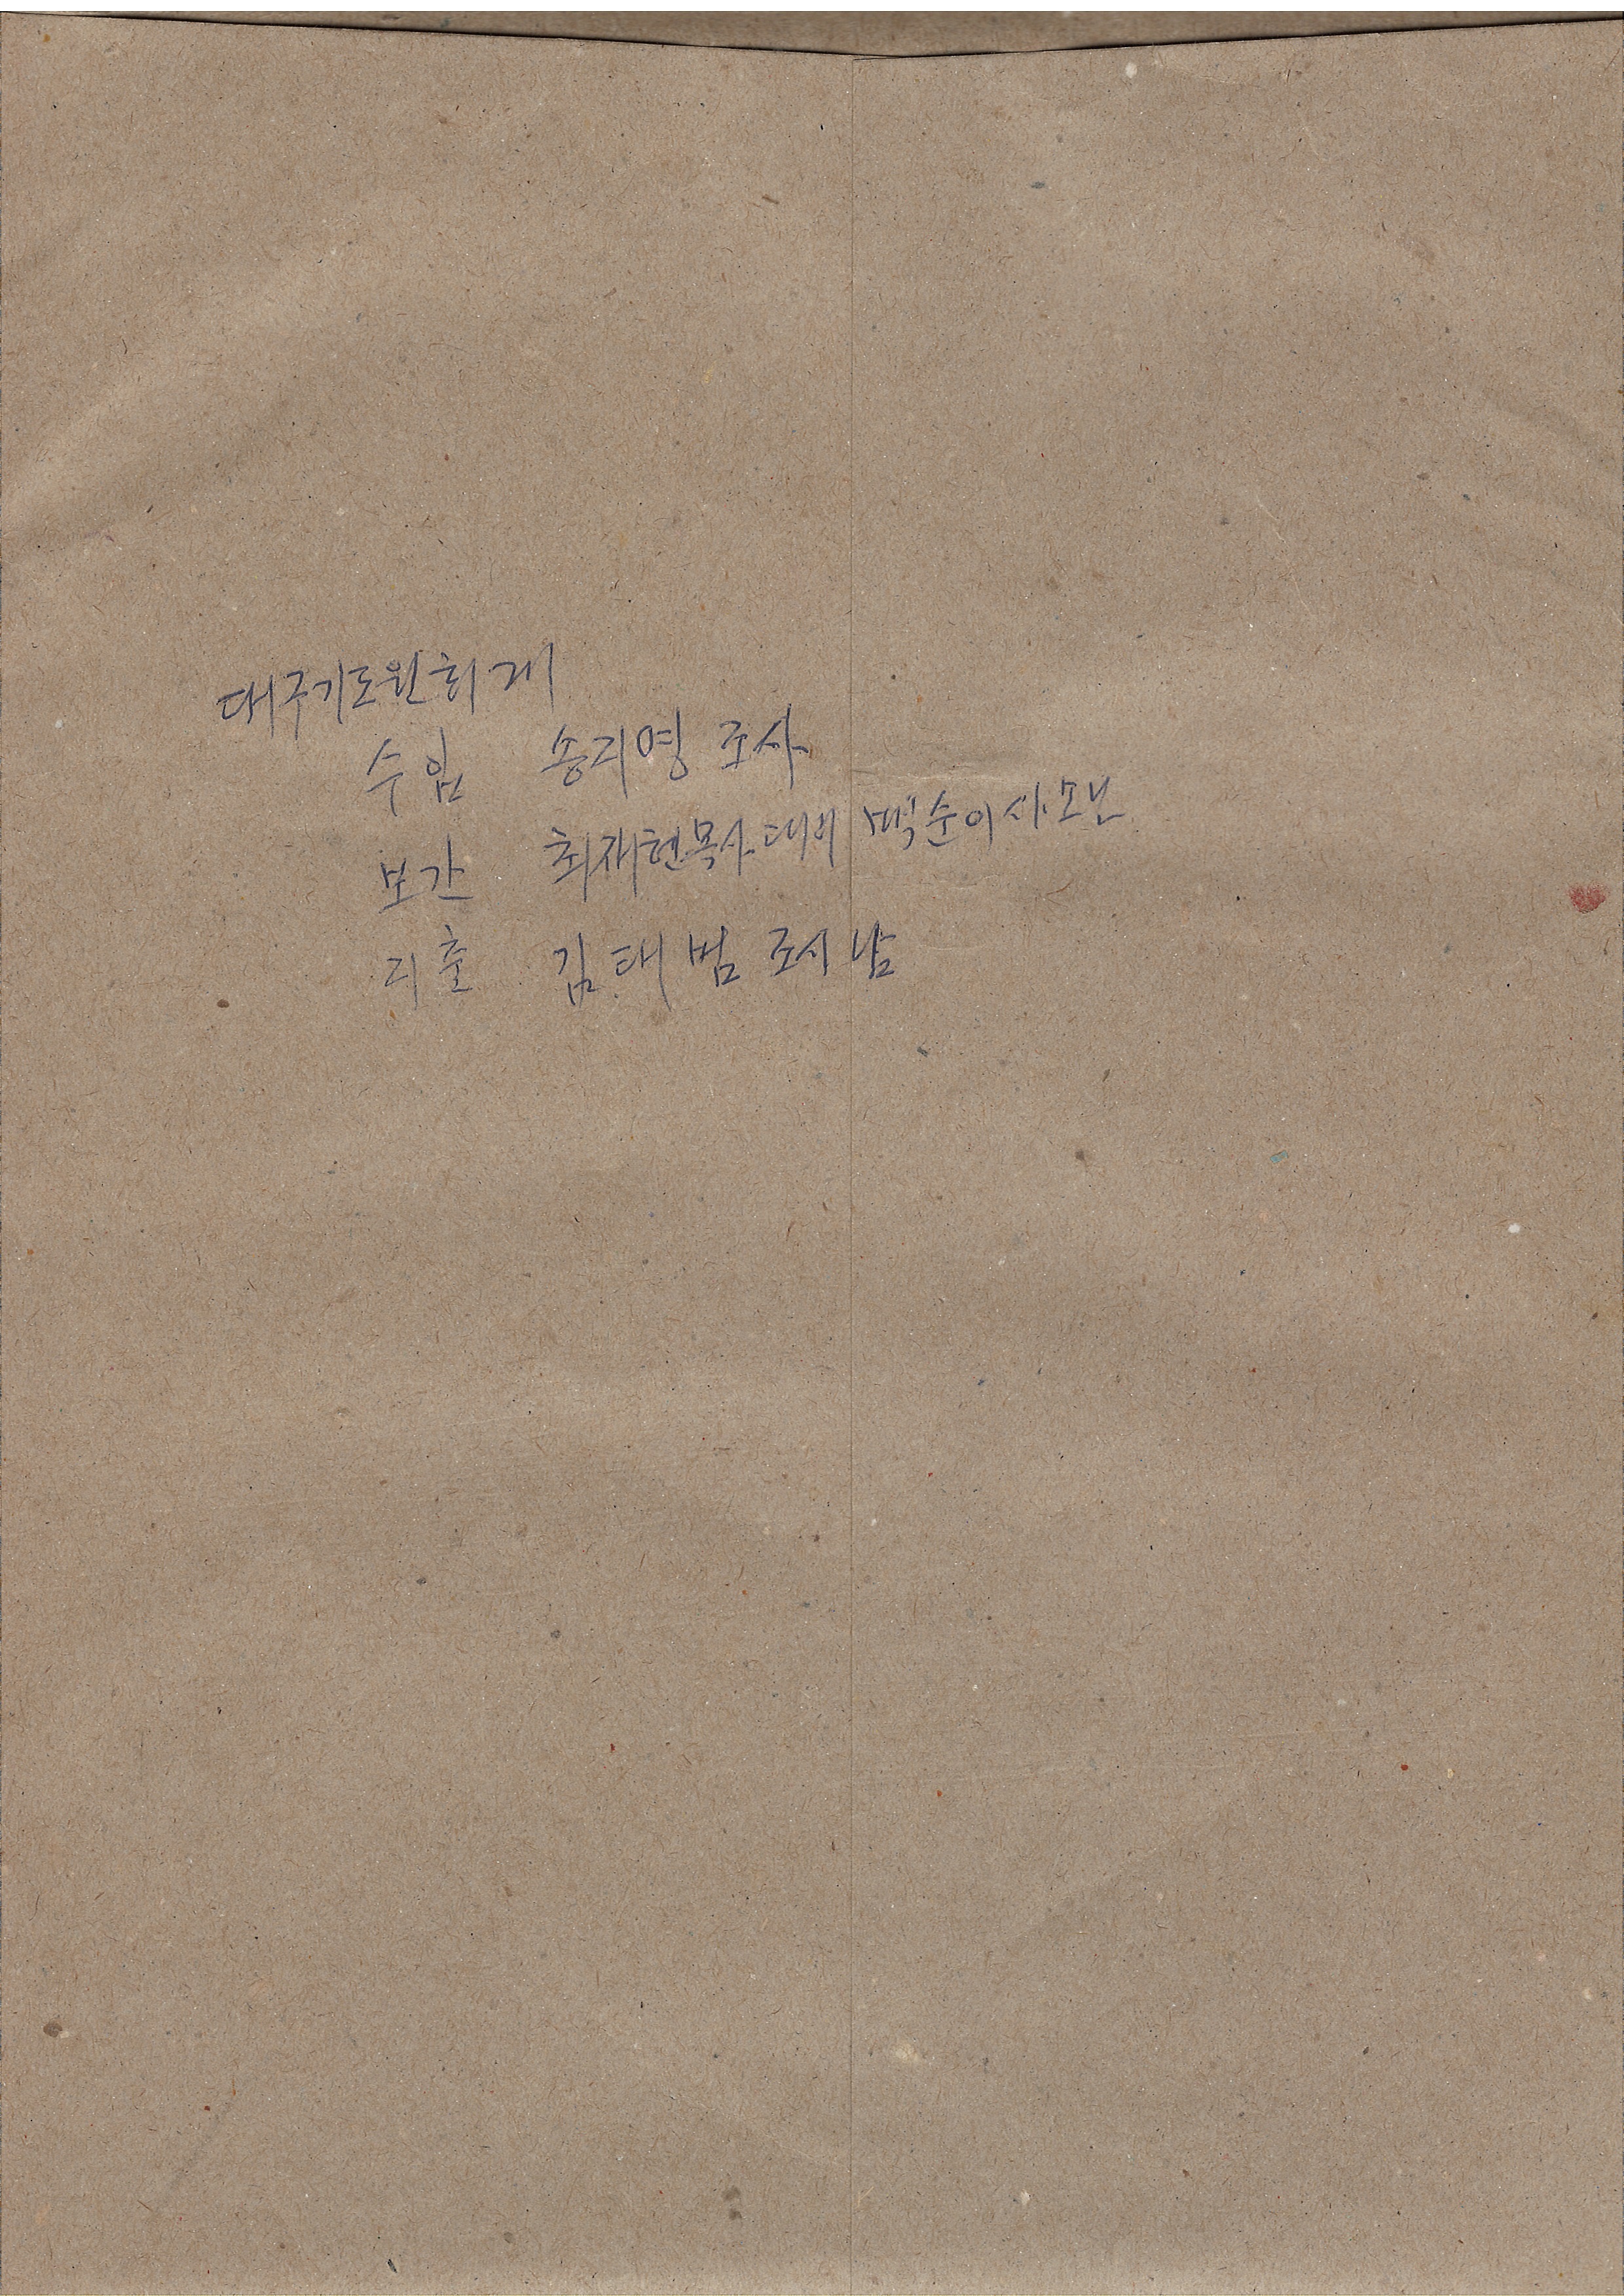 대구기도원회계
수입 송지영 조사
보관 최재현목사대비 백순이사모님
지출 김태범 조사님